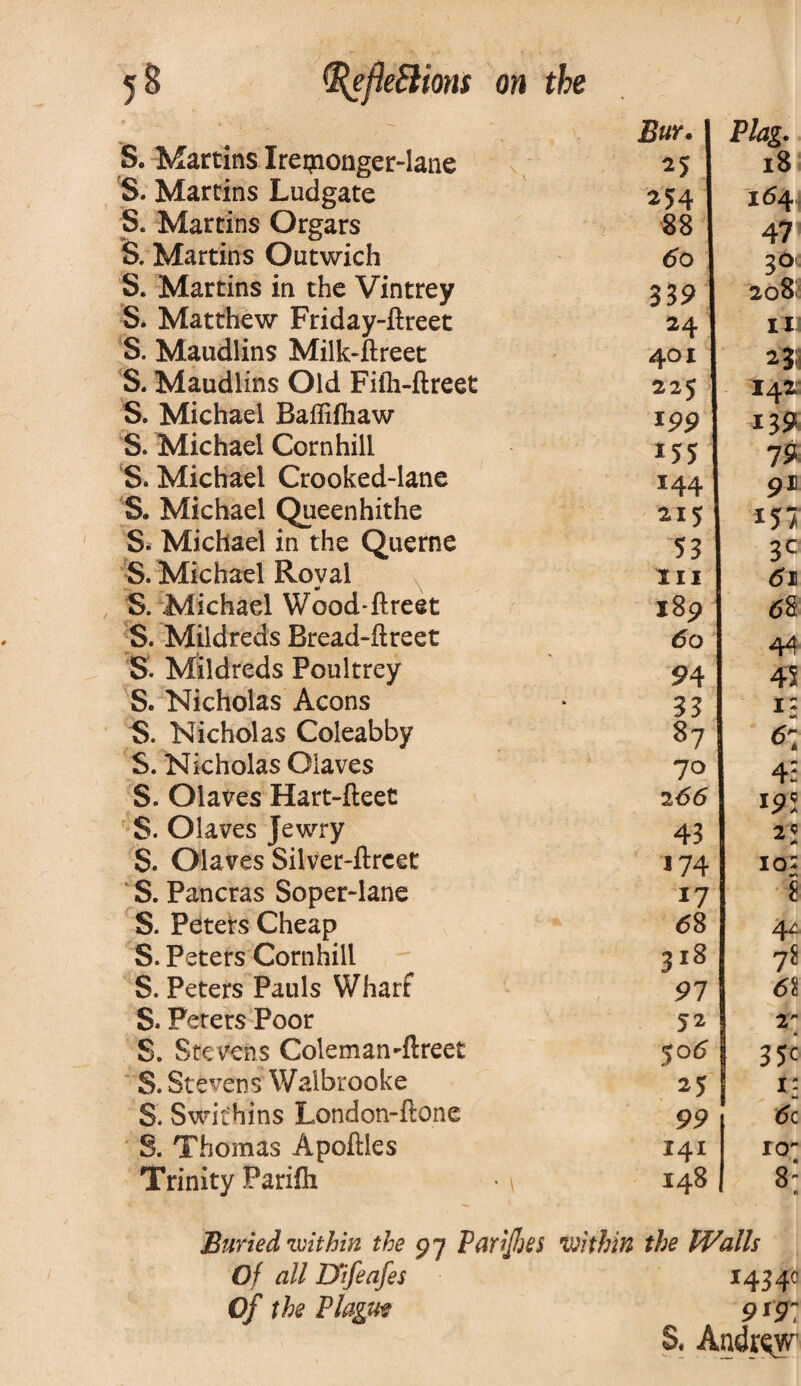 58 Reflections on the
Bur. Plag.
S. Martins Iremonger-lane 25 18
S. Martins Ludgate 254 164
S. Martins Orgars 88 47
S. Martins Outwich 60 30
S. Martins in the Vintrey 339 208
S. Matthew Friday-ſtreet 24 11
S. Maudlins Milk-ſtreet 401 23
S. Maudlins Old Fiſh-ſtreet 225 142
S. Michael Baſſiſhaw 199 139
S. Michael Cornhill 155 79
S. Michael Crooked-lane 144 91
S. Michael Queenhithe 215 157
S. Michael in the Querne 53 30
S. Michael Royal 111 61
S. Michael Wood-ſtreet 189 68
S. Mildreds Bread-ſtreet 60 44
S. Mildreds Poultrey 94 45
S. Nicholas Acons 33 1
S. Nicholas Coleabby 87 6
S. Nicholas Olaves 70 4
S. Olaves Hart-ſteet 266 195
S. Olaves Jewry 43 2
S. Olaves Silver-ſtreet 174 10
S. Pancras Soper-lane 17 8
S. Peters Cheap 68 4
S. Peters Cornhill 318 78
S. Peters Pauls Wharf 97 68
S. Peters Poor 52 2
S. Stevens Coleman-ſtreet 506 350
S. Stevens Walbrooke 25 1
S. Swithins London-ſtone 99 60
S. Thomas Apoſtles 141 10
Trinity Pariſh 148 8
Buried within the 97 Pariſhes within the Walls
Of all Diſeaſes 14340
Of the Plague 919
S. Andrew